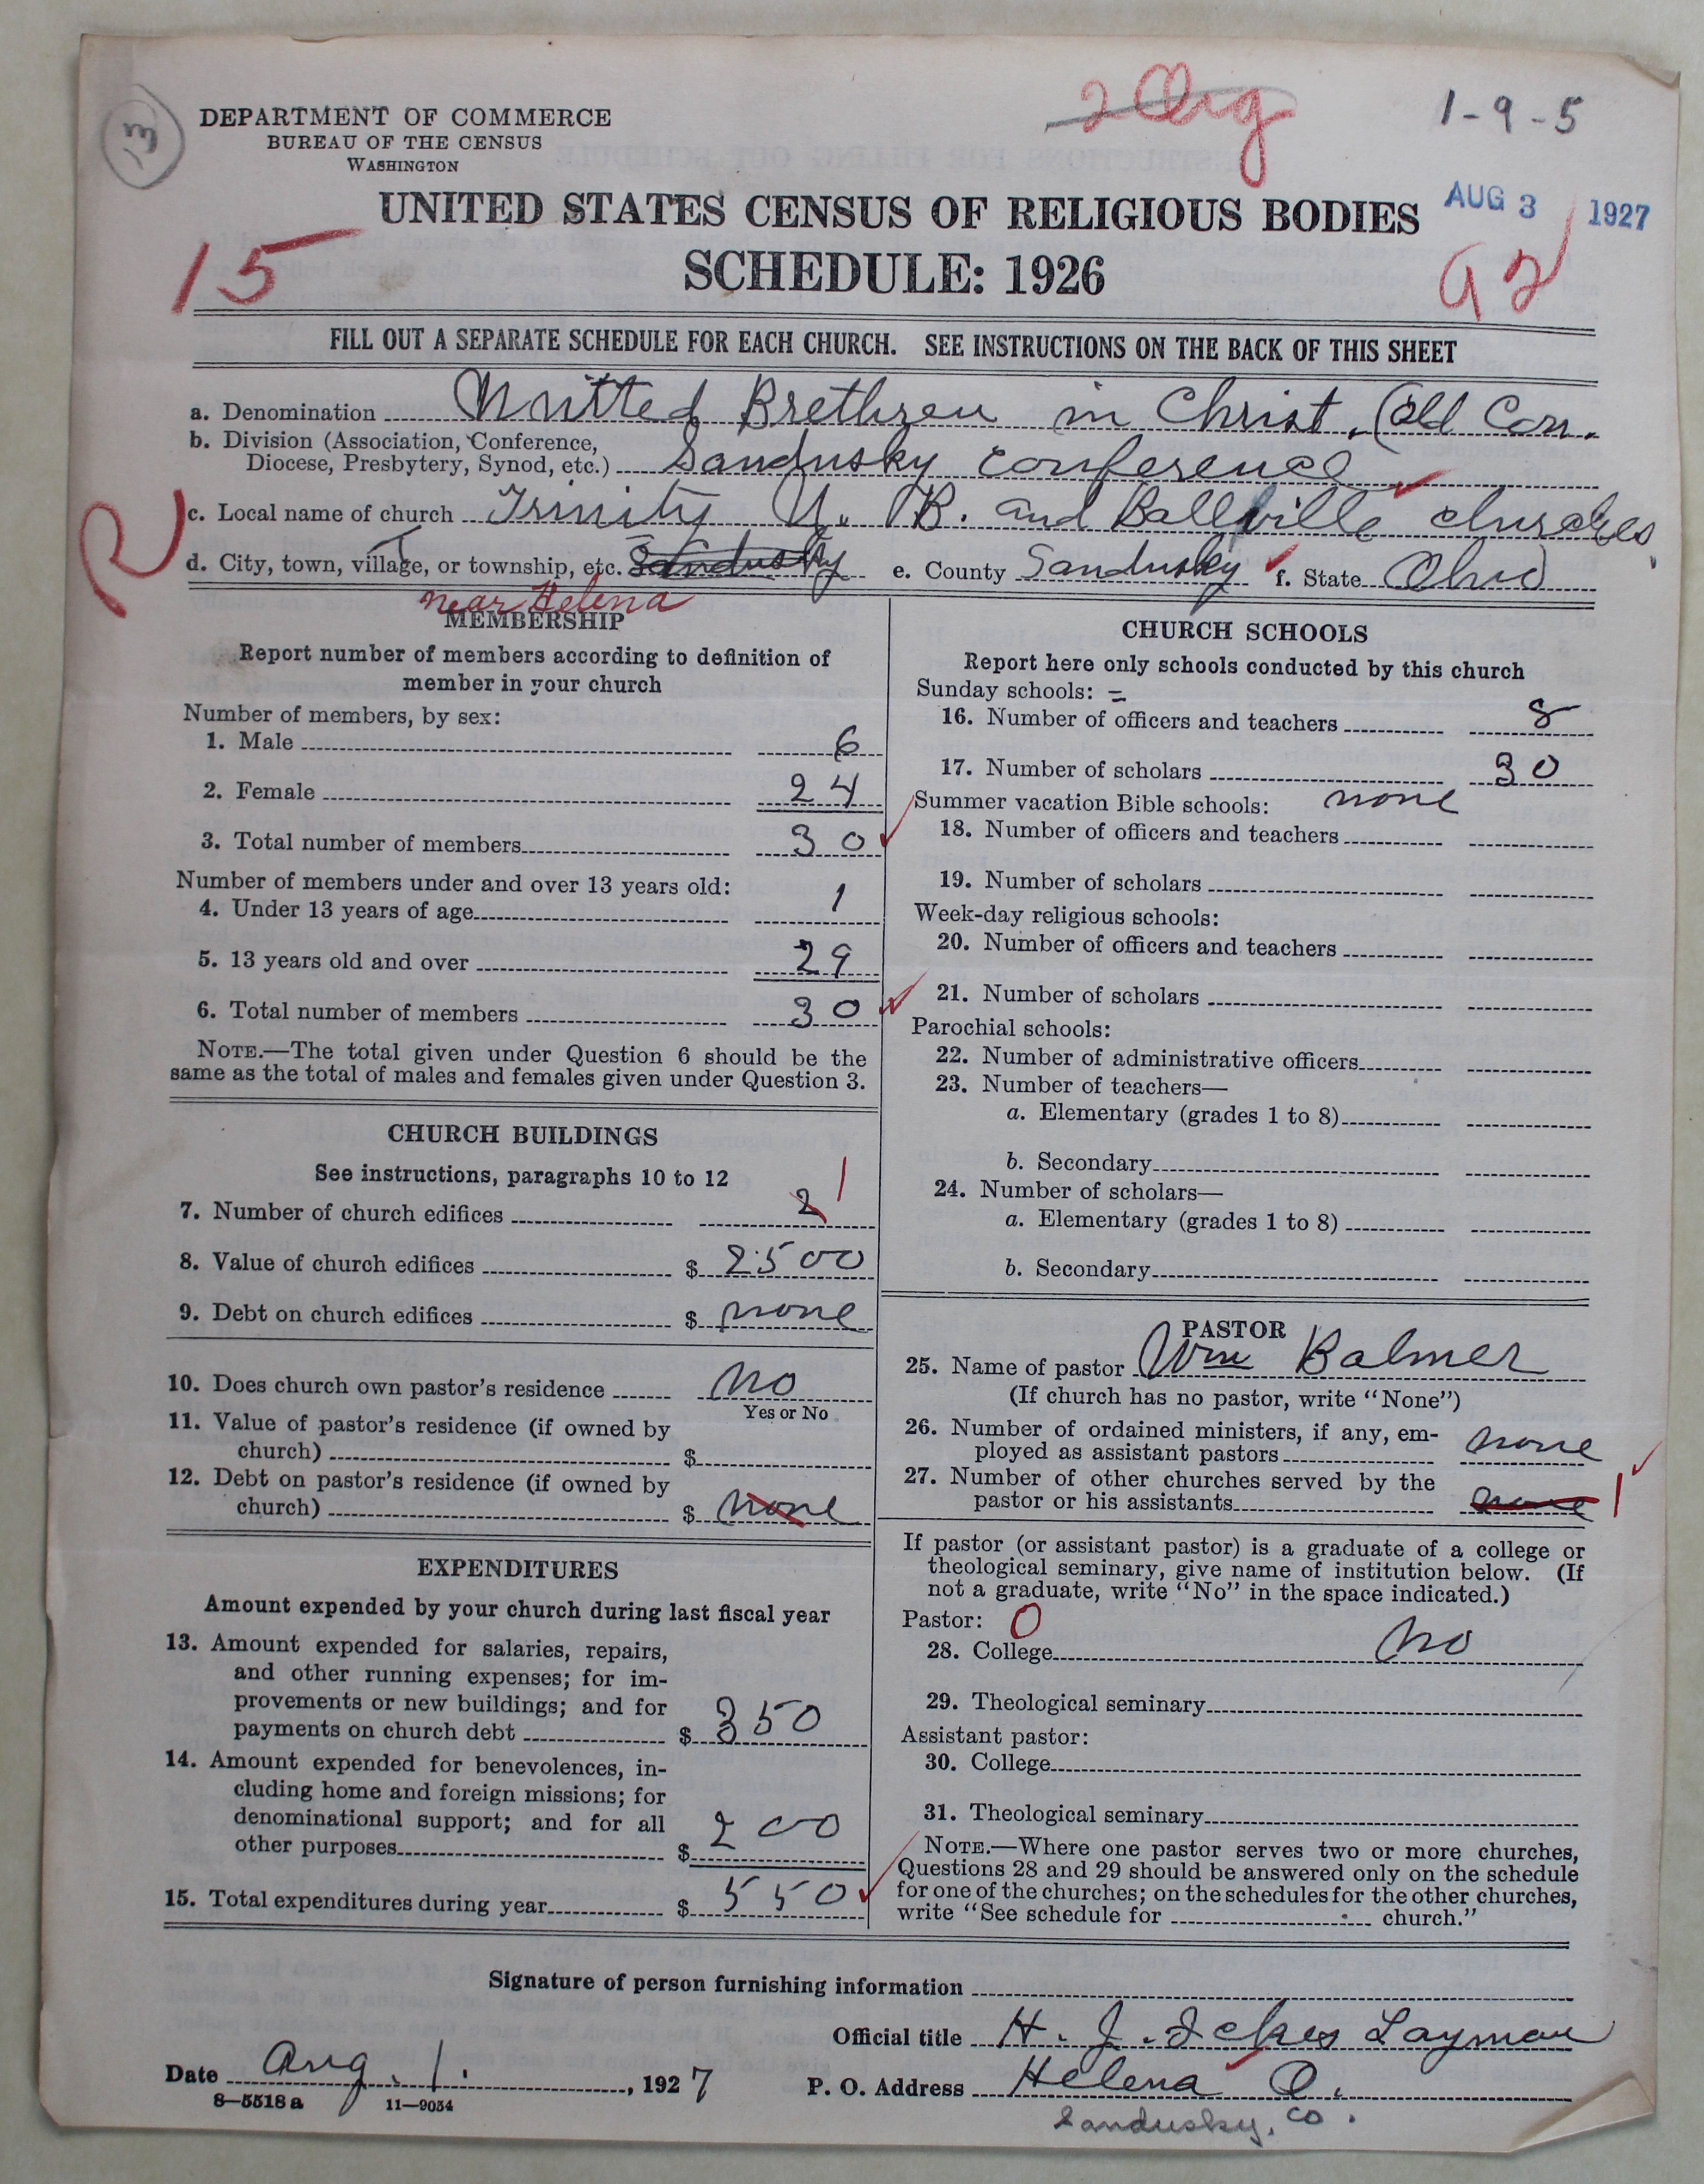 13
DEPARTMENT OF COMMERCE
BUREAU OF THE CENSUS
WASHINGTON
2 Org
1-9-5
UNITED STATES CENSUS OF RELIGIOUS BODIES
AUG 3 1927
SCHEDULE: 1926
15
92
FILL OUT A SEPARATE SCHEDULE FOR EACH CHURCH. SEE INSTRUCTIONS ON THE BACK OF THIS SHEET
a. Denomination Unitted Brethren in Christ. (Old Con.
b. Division (Association, Conference,
Diocese, Presbytery, Synod, etc.) Sandusky conference
c. Local name of church Trinity U. B. and Ballville churches
R
d. City, town, village, or township, etc. Sandusky e. County Sandusky f. State Ohio
near Helena
MEMBERSHIP
Report number of members according to definition of
member in your church
Number of members, by sex:
1. Male 6
2. Female 24
3. Total number of members 30
Number of members under and over 13 years old:
4. Under 13 years of age 1
5. 13 years old and over 29
6. Total number of members 30
NOTE.—The total given under Question 6 should be the
same as the total of males and females given under Question 3.
CHURCH BUILDINGS
See instructions, paragraphs 10 to 12
7. Number of church edifices 2 1
8. Value of church edifices $ 2500
9. Debt on church edifices $ none
10. Does church own pastor's residence No
Yes or No
11. Value of pastor's residence (if owned by
church) $
12. Debt on pastor's residence (if owned by
church) $ none
EXPENDITURES
Amount expended by your church during last fiscal year
13. Amount expended for salaries, repairs,
and other running expenses; for im-
provements or new buildings; and for
payments on church debt $ 350
14. Amount expended for benevolences, in-
cluding home and foreign missions; for
denominational support; and for all
other purposes $ 200
15. Total expenditures during year $ 550
CHURCH SCHOOLS
Report here only schools conducted by this church
Sunday schools: =
16. Number of officers and teachers 8
17. Number of scholars 30
Summer vacation Bible schools: none
18. Number of officers and teachers
19. Number of scholars
Week-day religious schools:
20. Number of officers and teachers
21. Number of scholars
Parochial schools:
22. Number of administrative officers
23. Number of teachers—
a. Elementary (grades 1 to 8)
b. Secondary
24. Number of scholars—
a. Elementary (grades 1 to 8)
b. Secondary
PASTOR
25. Name of pastor Wm Balmer
(If church has no pastor, write "None")
26. Number of ordained ministers, if any, em-
ployed as assistant pastors none
27. Number of other churches served by the
pastor or his assistants none 1
If pastor (or assistant pastor) is a graduate of a college or
theological seminary, give name of institution below. (If
not a graduate, write "No" in the space indicated.)
Pastor: 0
28. College No
29. Theological seminary
Assistant pastor:
30. College
31. Theological seminary
NOTE.—Where one pastor serves two or more churches,
Questions 28 and 29 should be answered only on the schedule
for one of the churches; on the schedules for the other churches,
write "See schedule for church."
Signature of person furnishing information
Official title H. J. Ickes Layman
Date Aug. 1. , 1927 P. O. Address Helena O.
8—5518 a 11—9034
Sandusky, Co.